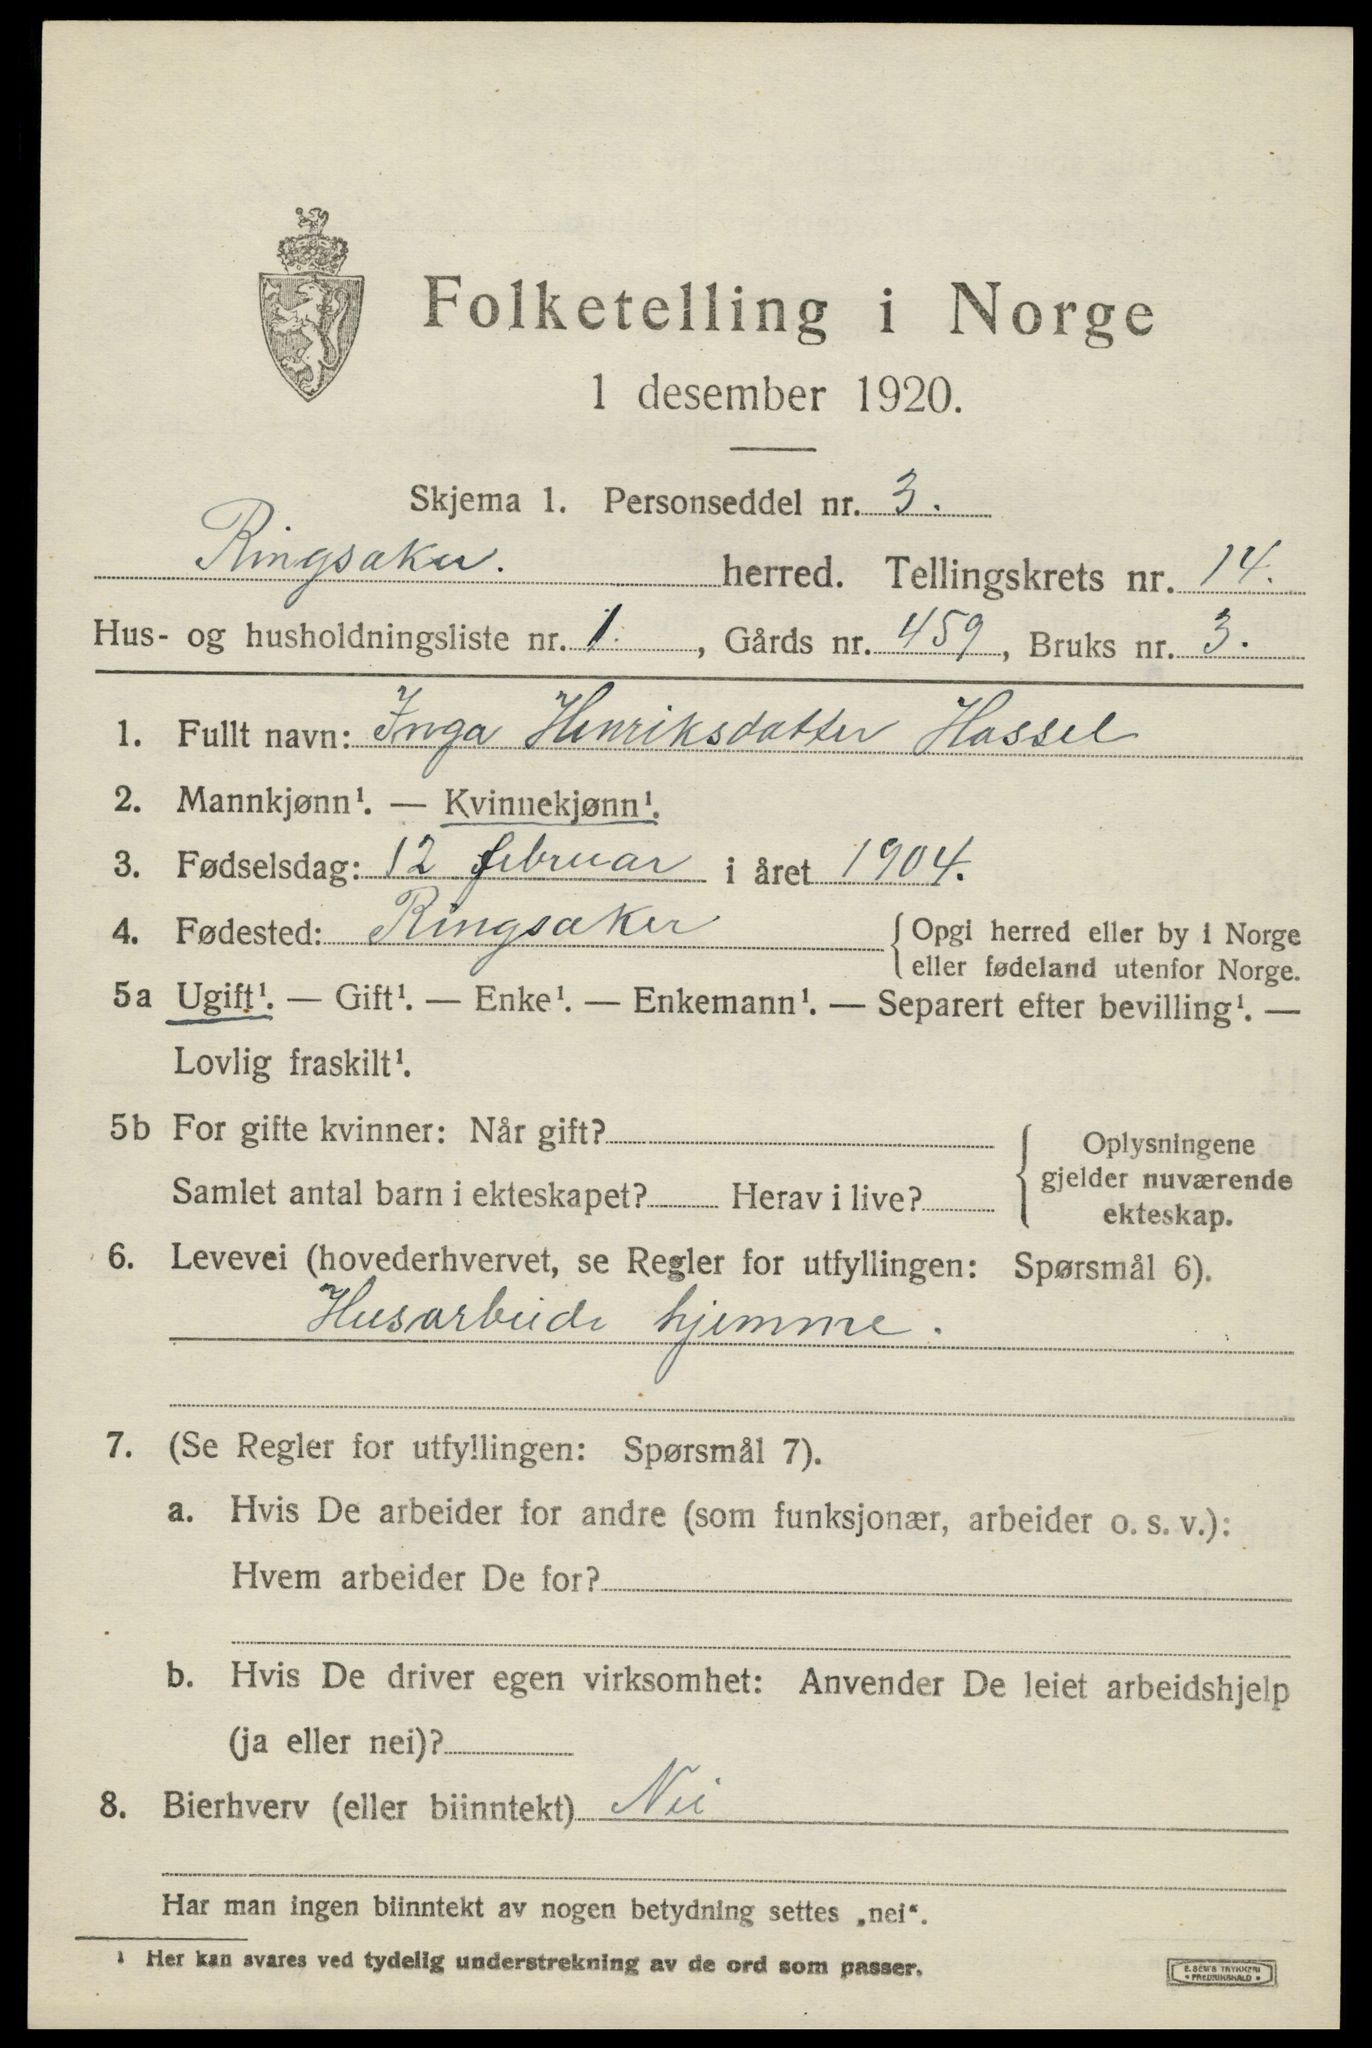 Folketelling i Norge
1 desember 1920.
Skjema 1. Personseddel nr. 3.
Ringsaker. herred. Tellingskrets nr. 14.
Hus- og husholdningsliste nr. 1. , Gårds nr. 459, Bruks nr. 3.
1. Fullt navn: Inga Henriksdatter Hassel
2. Mannkjønn¹. — Kvinnekjønn¹.
3. Fødselsdag: 12 februar i året 1904.
4. Fødested: Ringsaker { Opgi herred eller by i Norge
eller fødeland utenfor Norge.
5a Ugift¹. — Gift¹. — Enke¹. — Enkemann¹. — Separert efter bevilling¹. —
Lovlig fraskilt¹.
5b For gifte kvinner: Når gift?
Samlet antal barn i ekteskapet? Herav i live?
{ Oplysningene
gjelder nuværende
ekteskap.
6. Levevei (hovederhvervet, se Regler for utfyllingen: Spørsmål 6).
Husarbeide hjemme.
7. (Se Regler for utfyllingen: Spørsmål 7).
a. Hvis De arbeider for andre (som funksjonær, arbeider o. s. v.):
Hvem arbeider De for?
b. Hvis De driver egen virksomhet: Anvender De leiet arbeidshjelp
(ja eller nei)?
8. Bierhverv (eller biinntekt) Nei
Har man ingen biinntekt av nogen betydning settes „nei“.
¹ Her kan svares ved tydelig understrekning av de ord som passer.
E. SEM'S TRYKKERI
• FREDRIKSHALD •